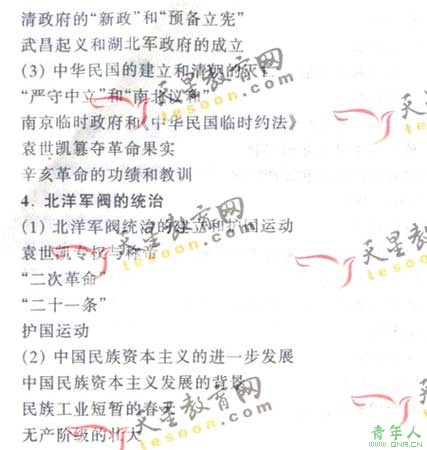 清政府的“新政”和“预备立宪”
武昌起义和湖北军政府的成立
(3) 中华民国的建立和清朝的灭亡
“严守中立”和“南北议和”
南京临时政府和《中华民国临时约法》
袁世凯篡夺革命果实
辛亥革命的功绩和教训
4. 北洋军阀的统治
(1) 北洋军阀统治的建立和护国运动
袁世凯专权与称帝
“二次革命”
“二十一条”
护国运动
(2) 中国民族资本主义的进一步发展
中国民族资本主义发展的背景
民族工业短暂的春天
无产阶级的壮大
天星教育网
tesoon.com
天星教育网
tesoon.com
天星教育网
tesoon.com
天星教育网
tesoon.com
青年人
WWW.QNR.CN